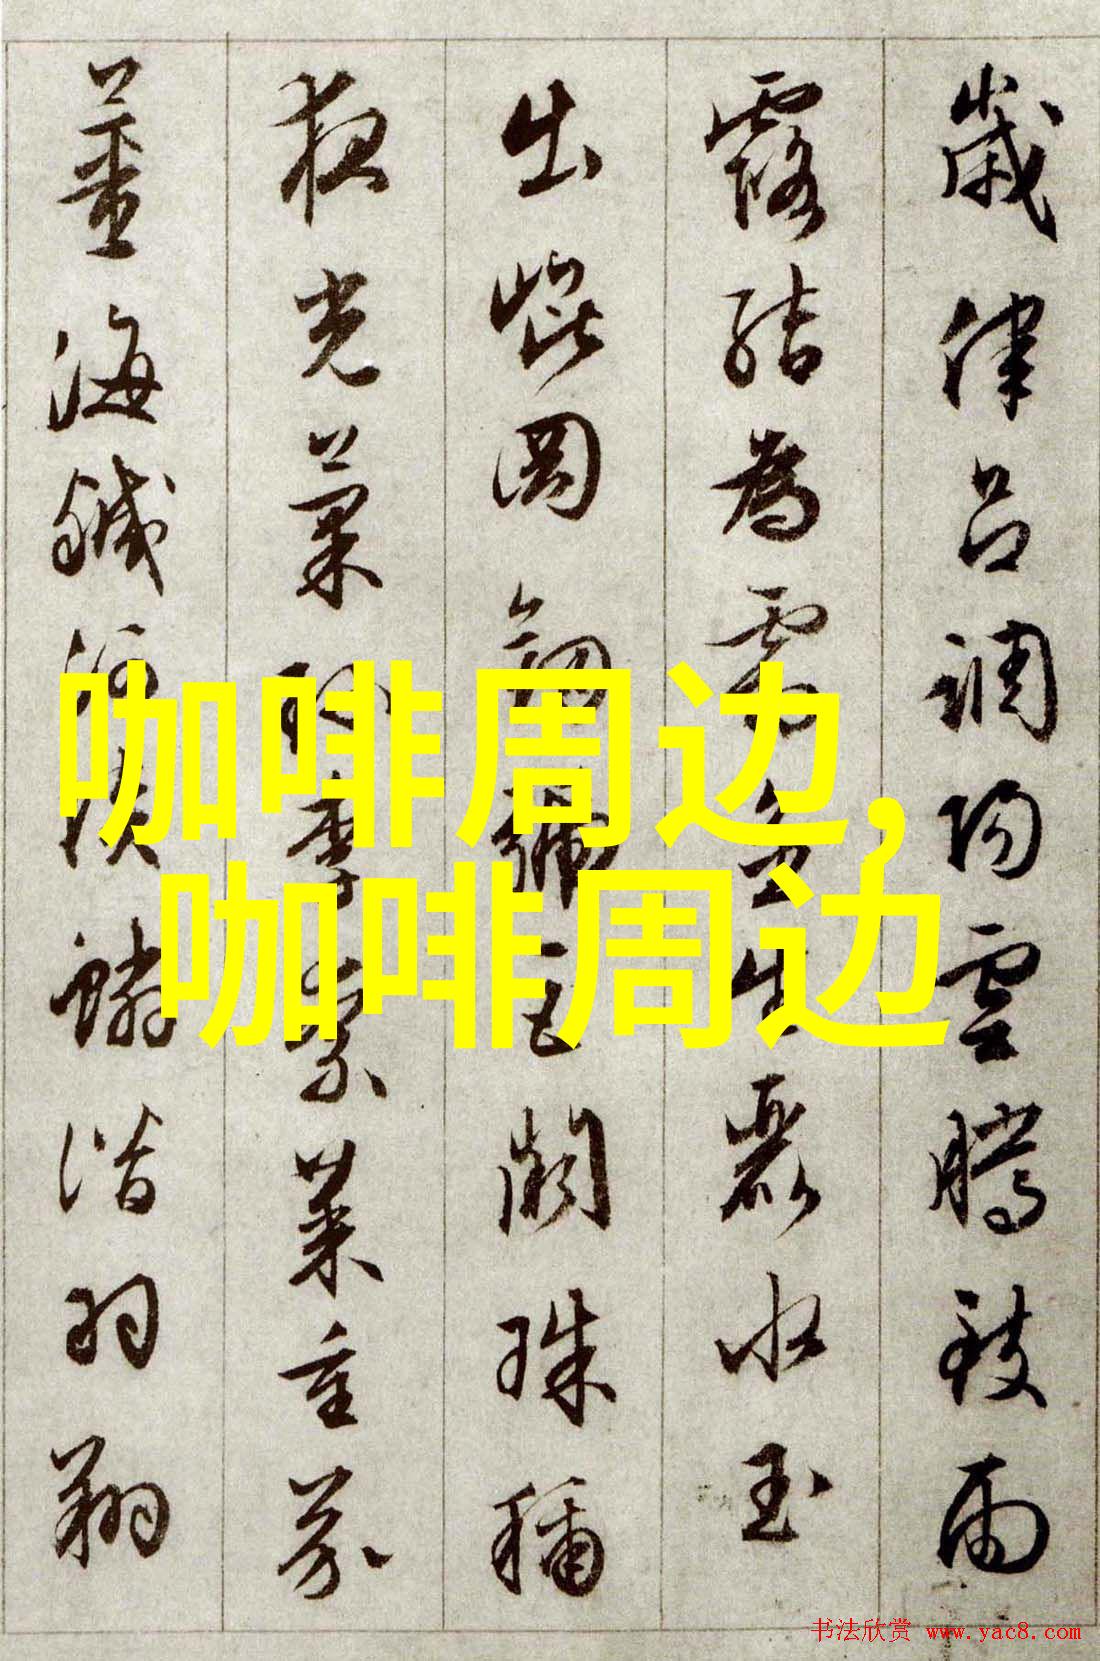 歲律呂調陽雲騰致雨
露結為霜金生麗水玉
出崐岡劒號巨闕珠稱
夜光菓珍李柰菜重芥
薑海鹹河淡鱗潛羽翔
咖啡周边,
咖啡周边
书法欣赏 www.yac8.com